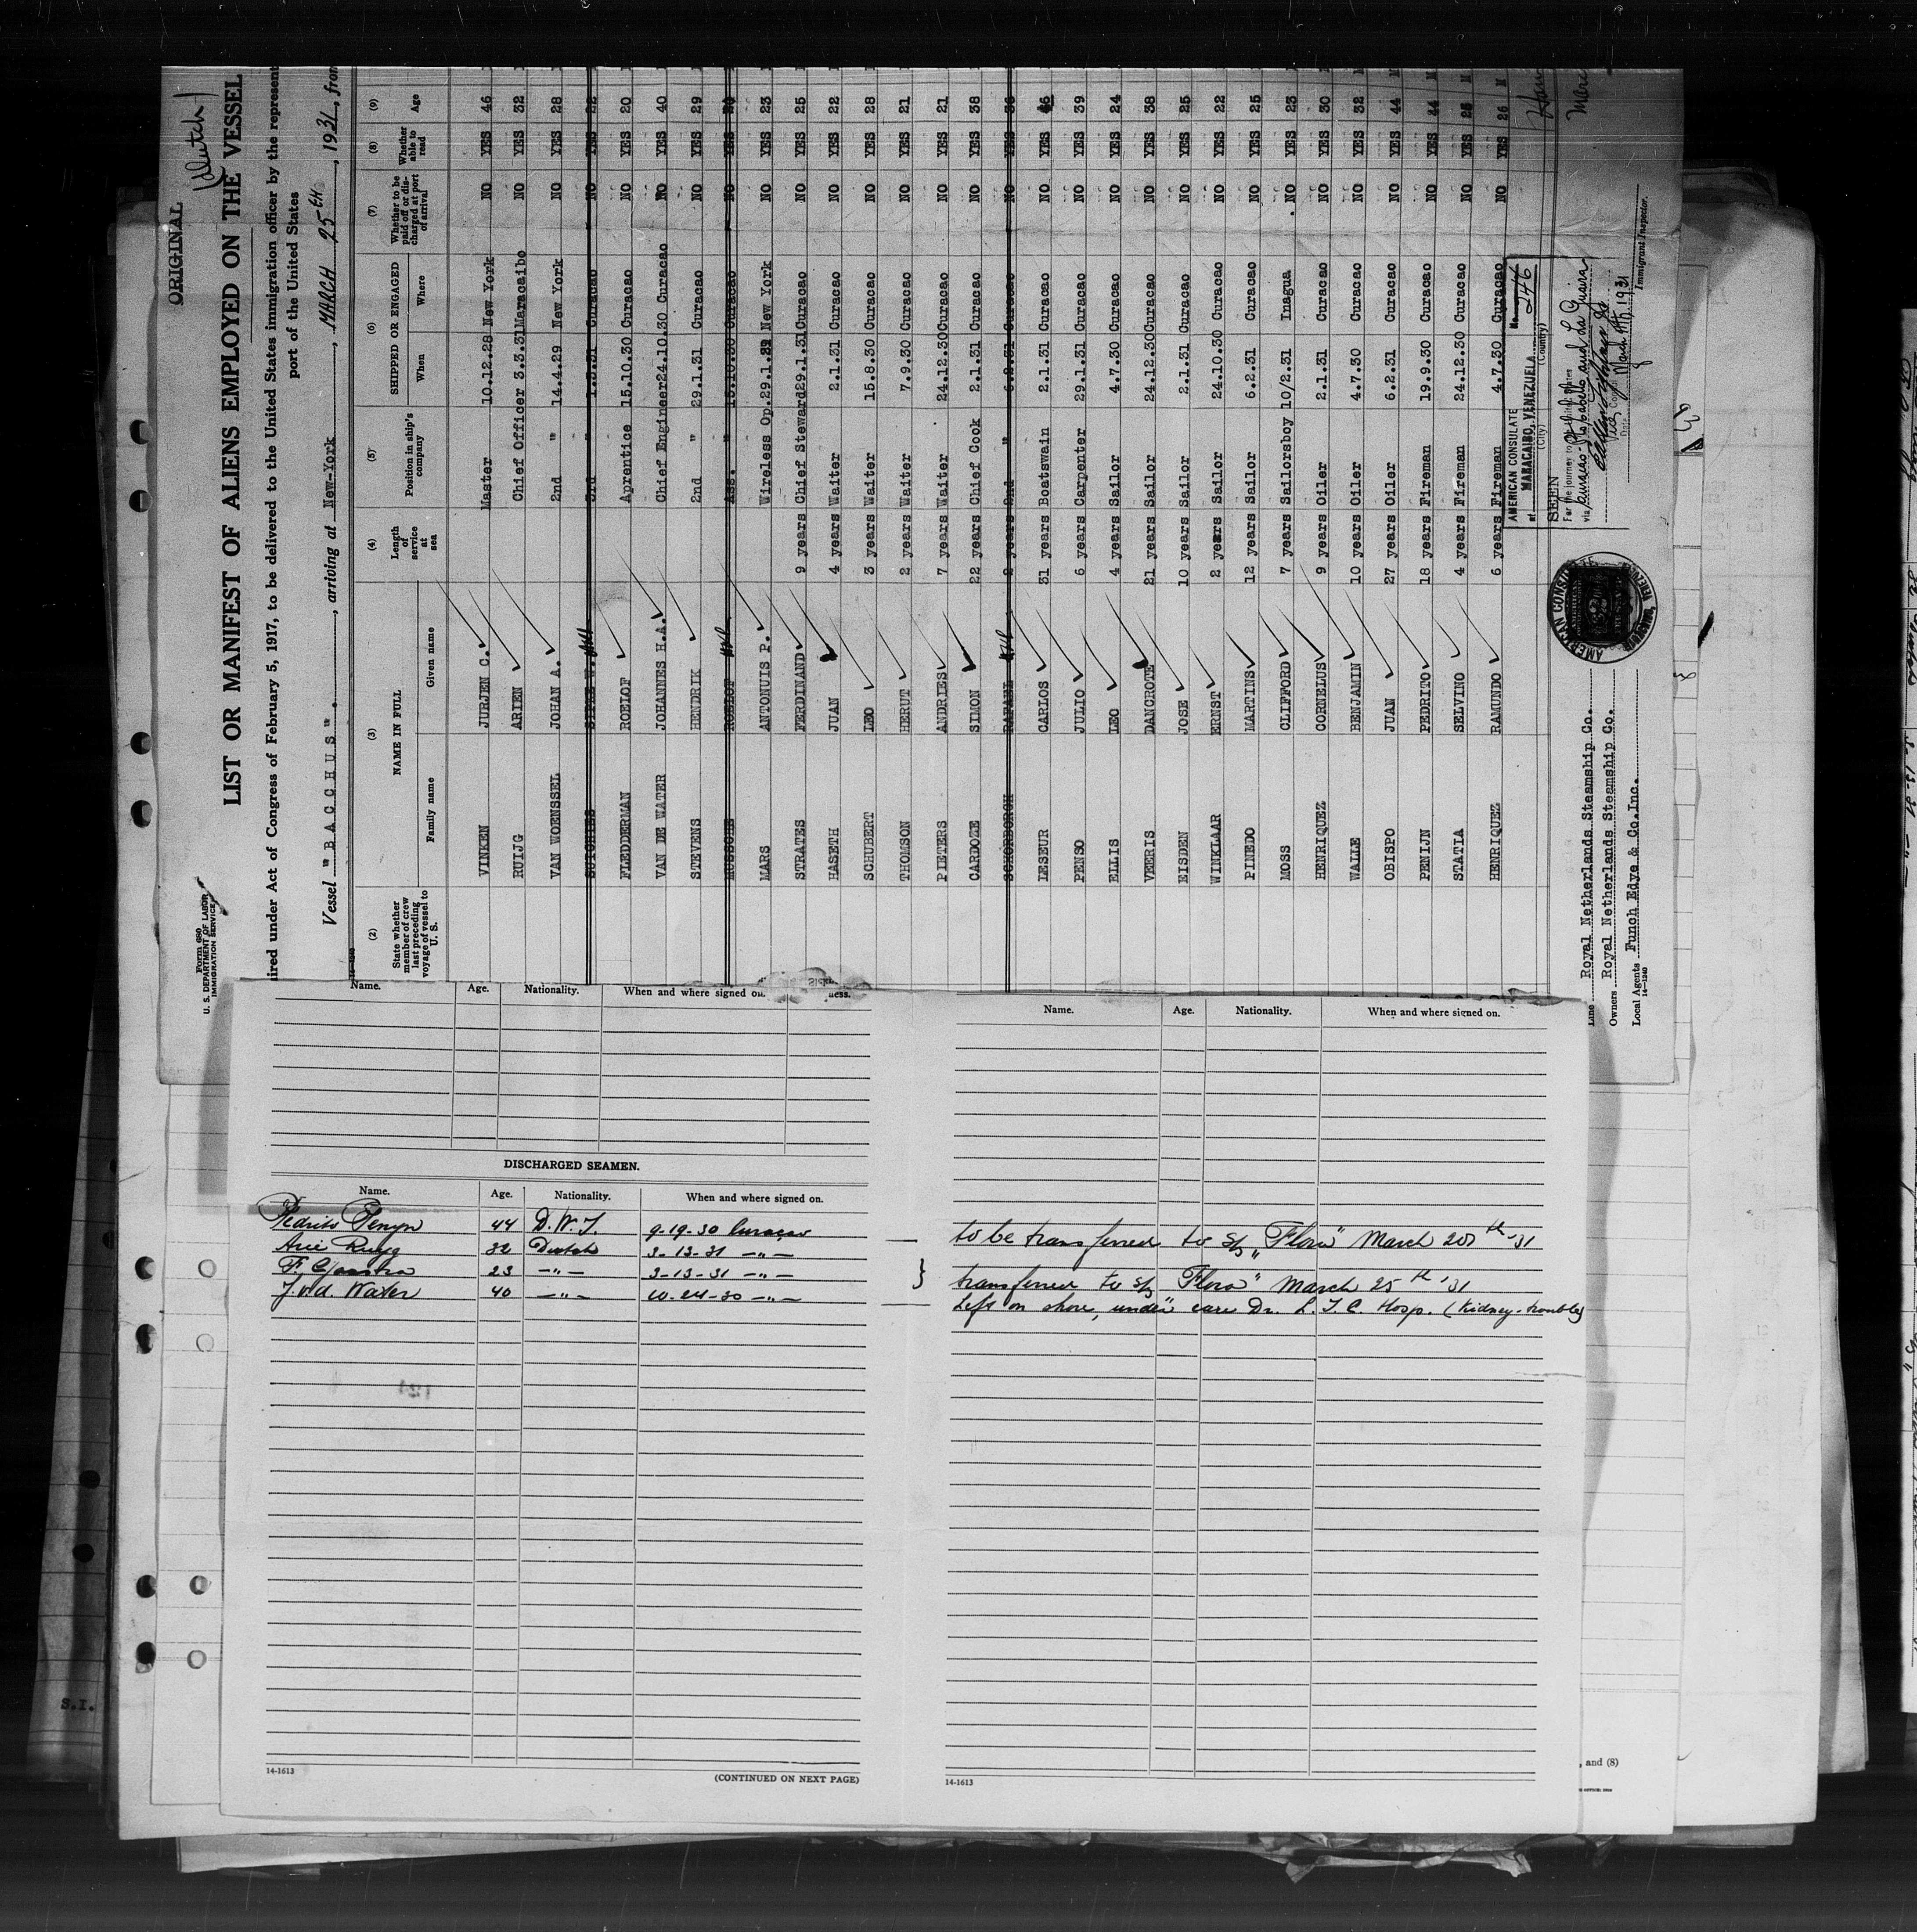 ORIGINAL
(Dutch)
Form 680
U. S. DEPARTMENT OF LABOR
IMMIGRATION SERVICE
LIST OR MANIFEST OF ALIENS EMPLOYED ON THE VESSEL
ired under Act of Congress of February 5, 1917, to be delivered to the United States immigration officer by the represent
port of the United States
Vessel "BACCHUS". , arriving at New-York , MARCH 25th , 1931, from
(2) (3) (4) (5) (6) (7) (8) (9)
State whether member of crew last preceding voyage of vessel to U. S. NAME IN FULL Length of service at sea Position in ship's company SHIPPED OR ENGAGED Whether to be paid off or discharged at port of arrival Whether able to read Age
Family name Given name When Where
VINKEN JURJEN C. Master 10.12.28 New York NO YES 46
RUIJG ARIEN Chief Officer 3.3.31 Maracaibo NO YES 32
VAN WOENSSEL JOHAN A. 2nd " 14.4.29 New York NO YES 28
3rd " Curacao NO YES 22
FLEDDERMAN ROELOF Aprentice 15.10.30 Curacao NO YES 20
VAN DE WATER JOHANNES H.A. Chief Engineer 24.10.30 Curacao NO YES 40
STEVENS HENDRIK 2nd " 29.1.31 Curacao NO YES 29
MUSSCHE ROELOF Ass. " 15.10.30 Curacao NO YES
MARS ANTONUIS P. Wireless Op. 29.1.31 New York NO YES 23
STRATES FERDINAND 9 years Chief Steward 29.1.31 Curacao NO YES 25
HASETH JUAN 4 years Waiter 2.1.31 Curacao NO YES 22
SCHUBERT LEO 3 years Waiter 15.8.30 Curacao NO YES 28
THOMSON HERUT 2 years Waiter 7.9.30 Curacao NO YES 21
PIETERS ANDRIES 7 years Waiter 24.12.30 Curacao NO YES 21
CARDOZE SIMON 22 years Chief Cook 2.1.31 Curacao NO YES 38
SCHORBORGH RAFAEL 2 years 2nd " 6.2.31 Curacao NO YES 36
LESEUR CARLOS 31 years Boatswain 2.1.31 Curacao NO YES 46
PENSO JULIO 6 years Carpenter 29.1.31 Curacao NO YES 39
ELLIS LEO 4 years Sailor 4.7.30 Curacao NO YES 24
VEERIS DANCROTE 21 years Sailor 24.12.30 Curacao NO YES 38
EISDEN JOSE 10 years Sailor 2.1.31 Curacao NO YES 25
WINKLAAR ERNST 2 years Sailor 24.10.30 Curacao NO YES 22
PINEDO MARTINS 12 years Sailor 6.2.31 Curacao NO YES 25
MOSS CLIFFORD 7 years Sailorsboy 10/2.31 Inagua NO YES 23
HENRIQUEZ CORNELUS 9 years Oiler 2.1.31 Curacao NO YES 30
WALLE BENJAMIN 10 years Oiler 4.7.30 Curacao NO YES 32
OBISPO JUAN 27 years Oiler 6.2.31 Curacao NO YES 44
PENIJN PEDRITO 18 years Fireman 19.9.30 Curacao NO YES 44
STATIA SELVINO 4 years Fireman 24.12.30 Curacao NO YES 25
HENRIQUEZ RAMUNDO 6 years Fireman 4.7.30 Curacao NO YES 26 M
AMERICAN CONSULATE No. 246
at MARACAIBO, VENEZUELA
(City) (Country)
SEEN
For the journey to the United States
via Curacao
Vice Consul
Date March 1931
Immigrant Inspector.
AMERICAN CONSULATE
Line Royal Netherlands Steamship Co.
Owners Royal Netherlands Steamship Co.
Local Agents Funch Edye & Co.Inc.
14-1240
Name. Age. Nationality. When and where signed on.
DISCHARGED SEAMEN.
Name. Age. Nationality. When and where signed on.
Pedrito Penyn 44 D.W.I. 9-19-30 Curaçao
Arie Ruijg 32 Dutch 3-13-31 -"-
23 -"- 3-13-31 -"-
J. v. d. Water 40 -"- 10-24-30 -"-
14-1613
(CONTINUED ON NEXT PAGE)
Name. Age. Nationality. When and where signed on.
to be transferred to s/s "Flora" March 20th-31
transferred to s/s "Flora" March 25th '31
Left on shore, under care Dr. L. I. C. Hosp. (Kidney-trouble)
14-1613
, and (8)
S.I.